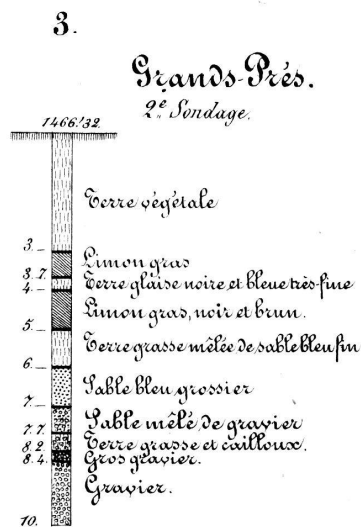 3.
Grands-Prés.
2e Sondage.
1466.32.
Terre végétale
3._
Limon gras
3.7._
Terre glaise noire et bleue très-fine
4._
Limon gras, noir et brun.
5._
Terre grasse mêlée de sable bleu fin
6._
Sable bleu grossier
7._
Sable mêlé de gravier
7.7._
Terre grasse et cailloux.
8.2._
Gros gravier.
8.4._
Gravier.
10._